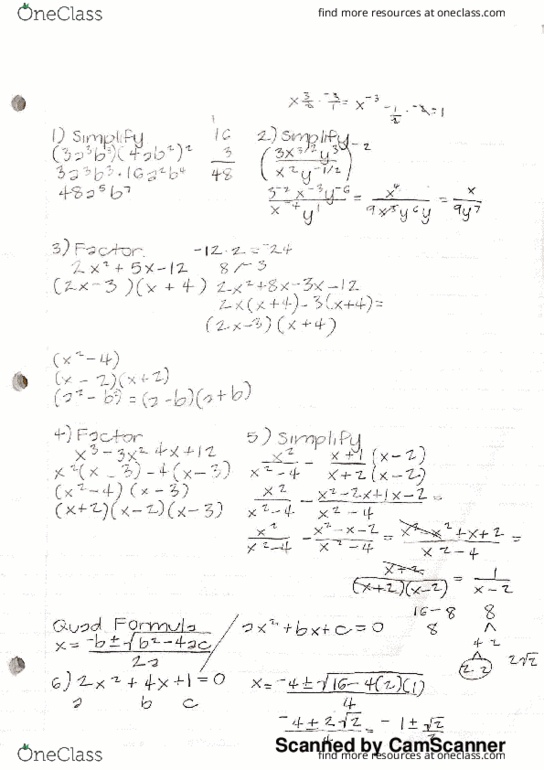 OneClass
find more resources at oneclass.com
x 3/2 · -2/1 = x^-3   -1/2 · -2 = 1
1) Simplify
(3a³b³)(4ab²)²
3a³b³ · 16a²b⁴
48a⁵b⁷
16
3
48
2) Simplify
(3x^3/2 y³ / x²y^-1/2)^-2
3^-2 x^-3 y^-6 / x^-4 y¹ = x⁴ / 9x³y⁶y = x / 9y⁷
3) Factor
-12 · 2 = -24
2x² + 5x - 12
8 / -3
(2x - 3)(x + 4)
2x² + 8x - 3x - 12
2x(x + 4) - 3(x + 4) =
(2x - 3)(x + 4)
(x² - 4)
(x - 2)(x + 2)
(a² - b²) = (a - b)(a + b)
4) Factor
x³ - 3x² - 4x + 12
x²(x - 3) - 4(x - 3)
(x² - 4)(x - 3)
(x + 2)(x - 2)(x - 3)
5) Simplify
x² / x² - 4 - x + 1 (x - 2) / x + 2 (x - 2)
x² / x² - 4 - x² - 2x + 1x - 2 / x² - 4 =
x² / x² - 4 - x² - x - 2 / x² - 4 = x² - x² + x + 2 / x² - 4 =
x + 2 / (x + 2)(x - 2) = 1 / x - 2
Quad Formula
x = -b ± √b² - 4ac / 2a
ax² + bx + c = 0
16 - 8
8
8
4 2
2 2
2√2
6) 2x² + 4x + 1 = 0
a b c
x = -4 ± √16 - 4(2)(1) / 4
-4 ± 2√2 / 4 = -1 ± √2 / 2
Scanned by CamScanner
OneClass
find more resources at oneclass.com